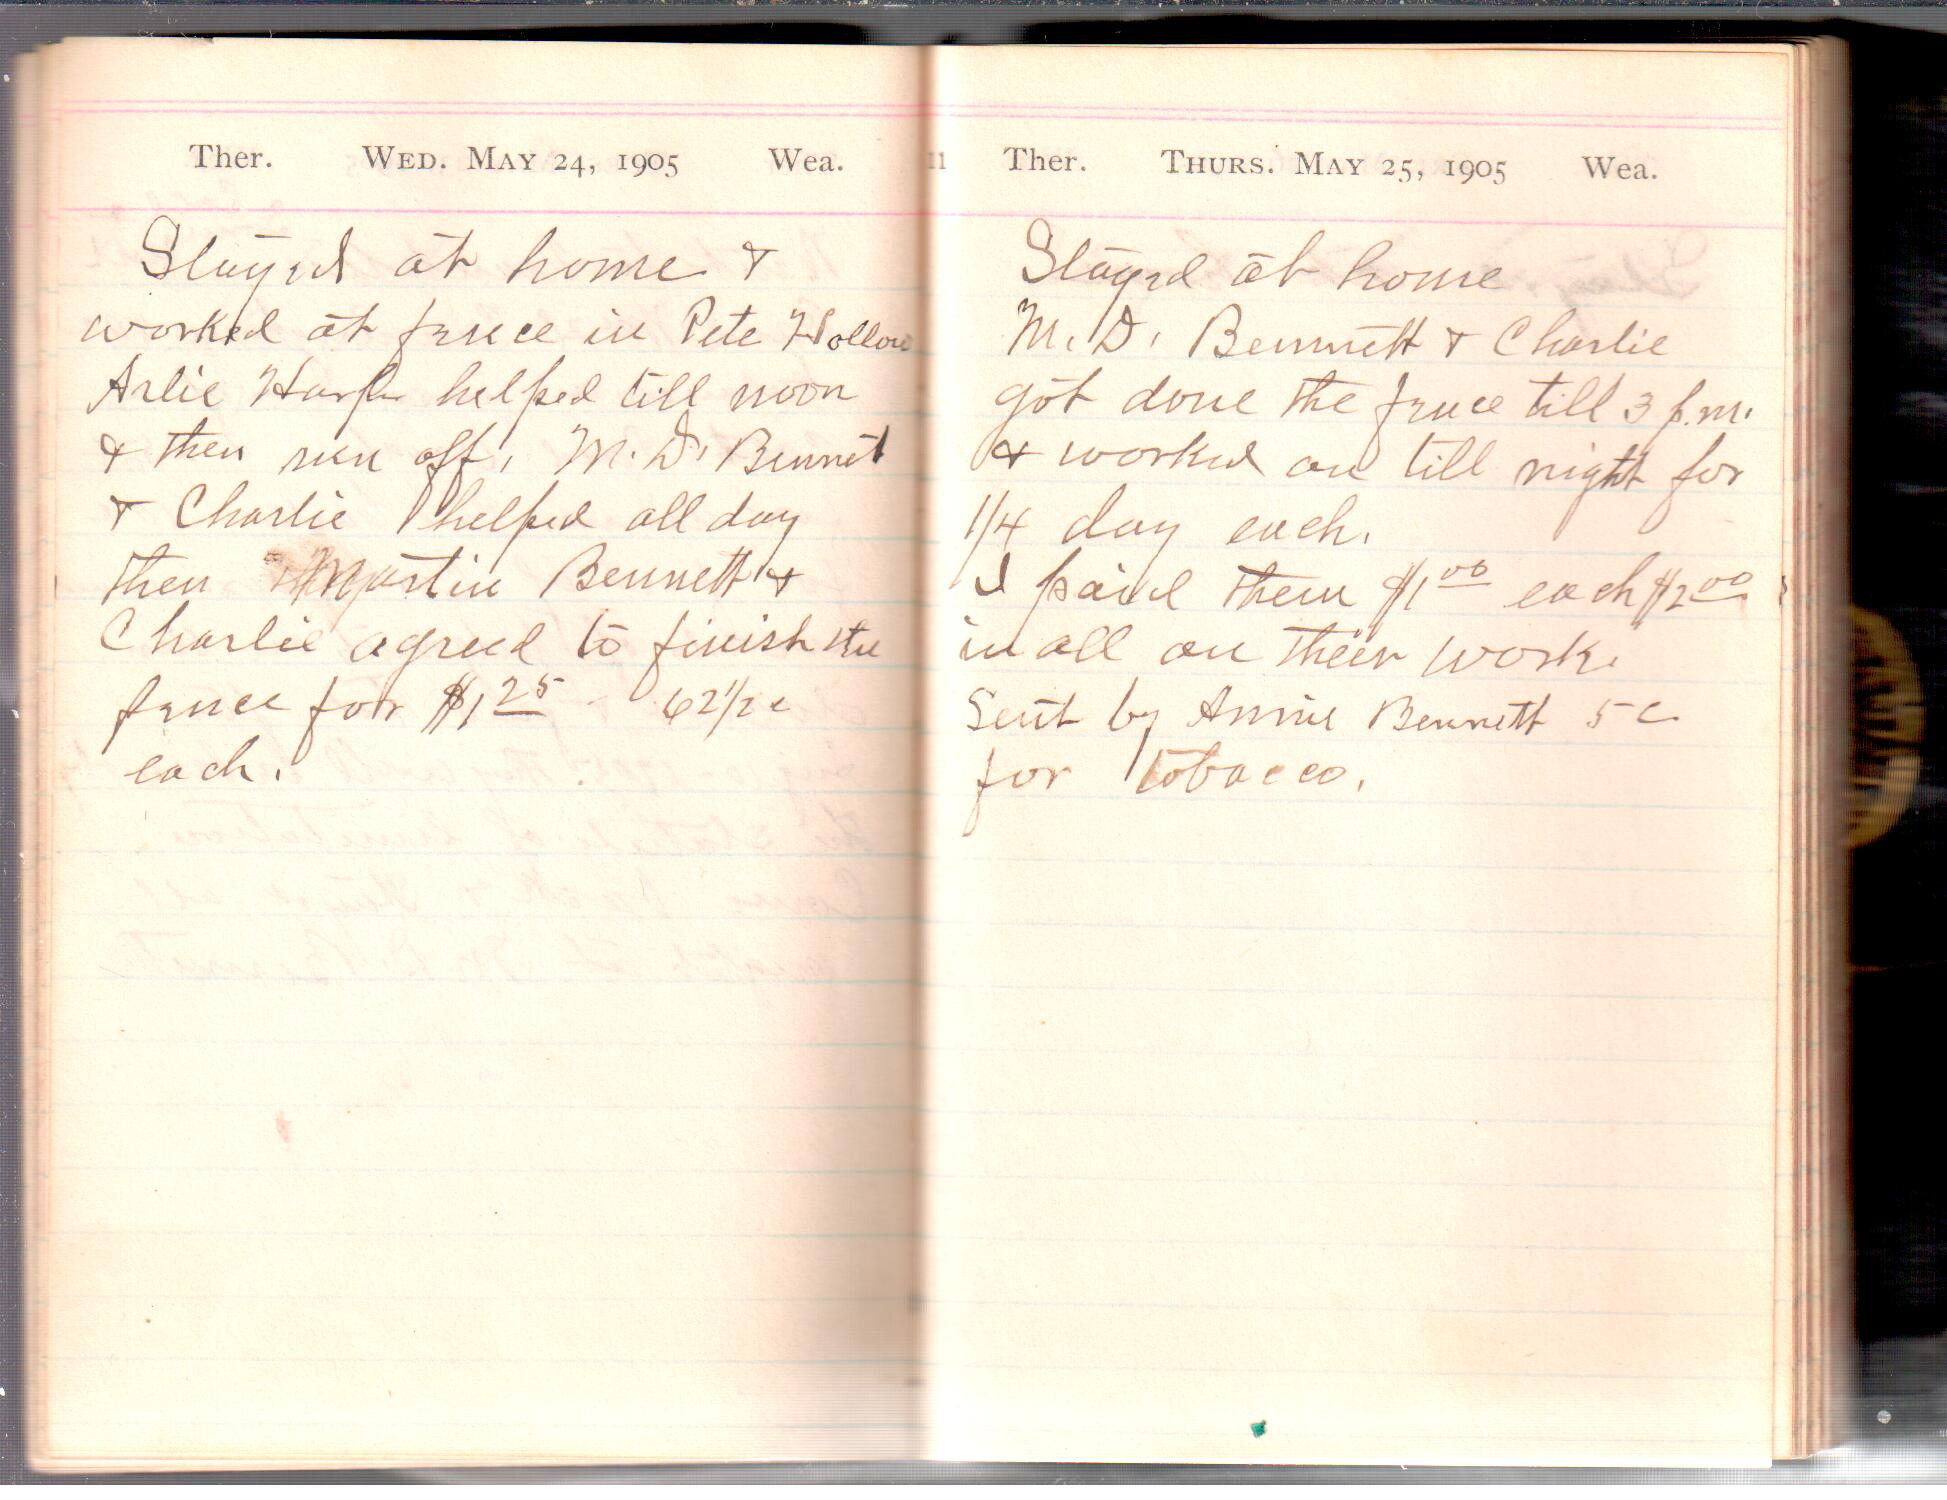 Ther. WED. MAY 24, 1905 Wea.
Stayed at home &
worked at fence in Pete Hollow
Arlie Harper helped till noon
& then run off, M. D. Bennet
& Charlie helped all day
then Martin Bennett &
Charlie agreed to finish the
fence for $1 25 - 62 1/2 c
each.
11 Ther. THURS. MAY 25, 1905 Wea.
Stayed at home
M. D. Bennett & Charlie
got done the fence till 3 p.m.
& worked on till night for
1/4 day each.
I paid them $1 00 each $2 00
in all on their work.
Sent by Annie Bennett 5 c
for tobacco.